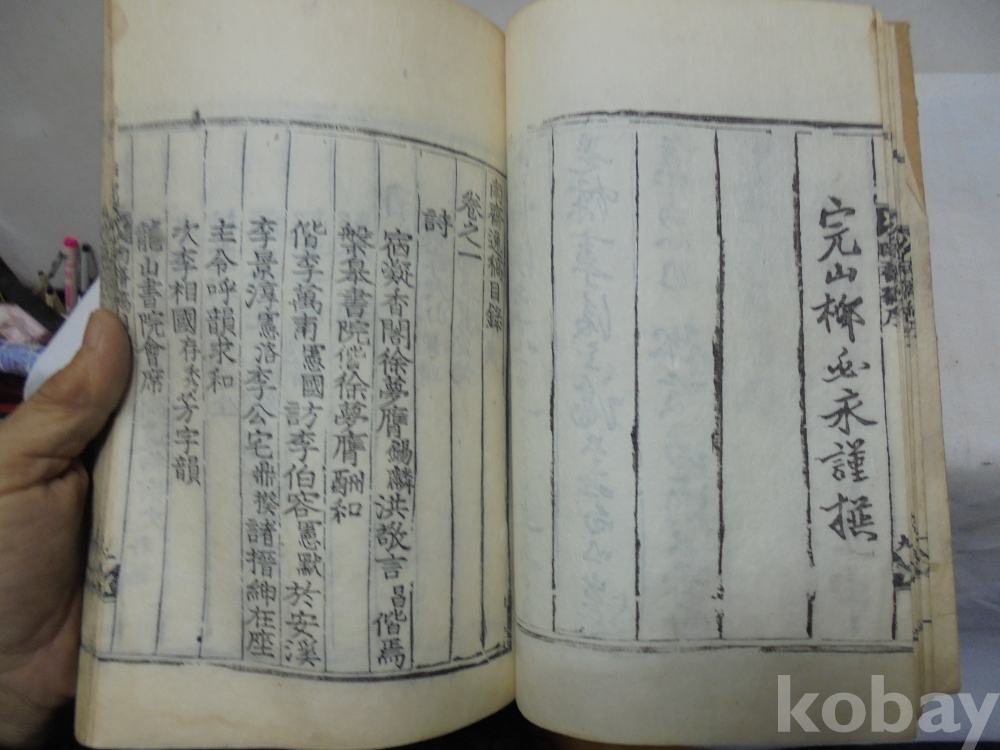 完山柳必永謹撰
南齋稿目錄
卷之一
詩
宿凝香閣徐夢膺錫麟洪敬言昌偕焉
書院偕徐夢膺酬和
偕李萬甫憲國訪李伯容憲默於安溪
李景淳憲洛李公宅鼎揆諸搢紳在座
主令呼韻求和
次李相國存秀芳字韻
龍山書院會席
kobay